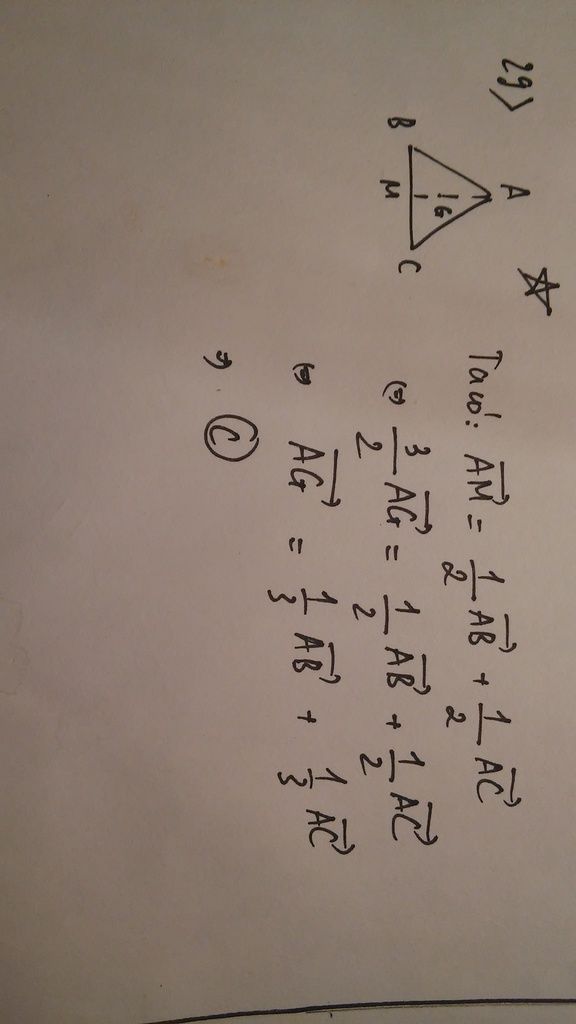 29>
A
B
G
M
C
Ta có: $\overrightarrow{AM} = \frac{1}{2}\overrightarrow{AB} + \frac{1}{2}\overrightarrow{AC}$
(=) $\frac{3}{2}\overrightarrow{AG} = \frac{1}{2}\overrightarrow{AB} + \frac{1}{2}\overrightarrow{AC}$
(=) $\overrightarrow{AG} = \frac{1}{3}\overrightarrow{AB} + \frac{1}{3}\overrightarrow{AC}$
=) C